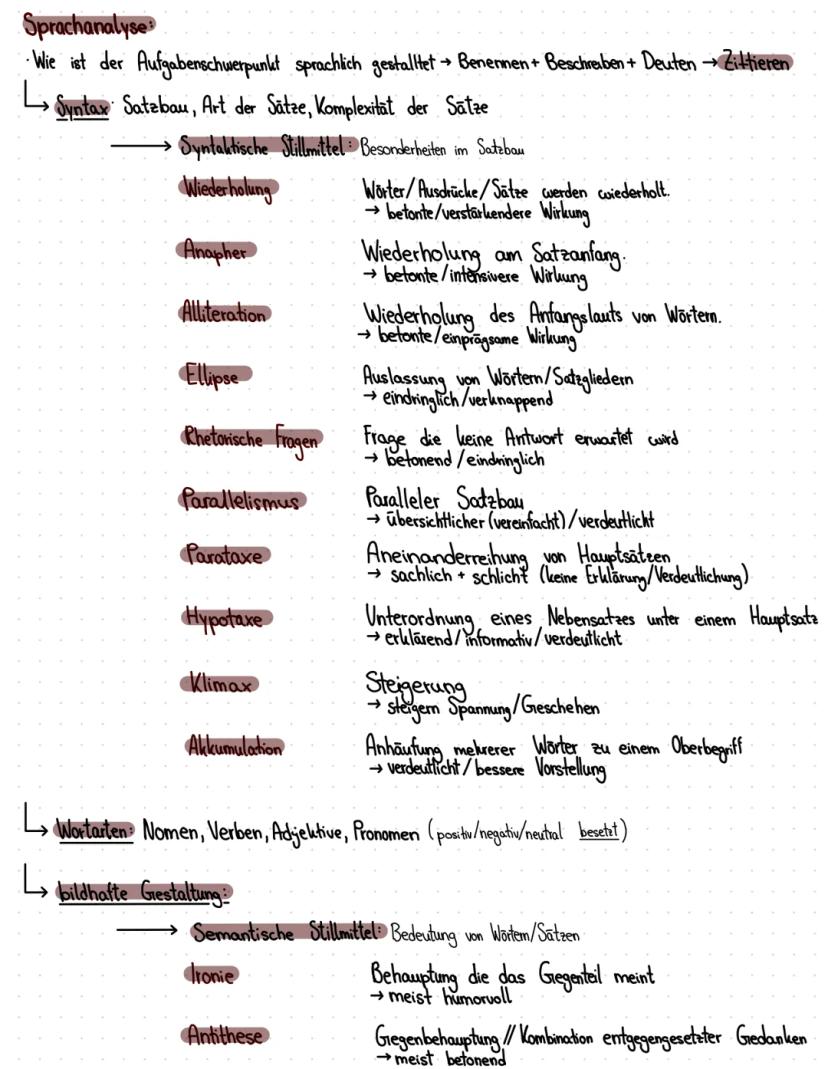 Sprachanalyse:
· Wie ist der Aufgabenschwerpunkt sprachlich gestalltet → Benennen + Beschreiben + Deuten → Zittieren
↳ Syntax: Satzbau, Art der Sätze, Komplexität der Sätze
→ Syntaktische Stillmittel: Besonderheiten im Satzbau
Wiederholung Wörter/Ausdrücke/Sätze werden wiederholt.
→ betonte/verstärkendere Wirkung
Anapher Wiederholung am Satzanfang.
→ betonte/intensivere Wirkung
Alliteration Wiederholung des Anfangslauts von Wörtern.
→ betonte/einprägsame Wirkung
Ellipse Auslassung von Wörtern/Satzgliedern
→ eindringlich/verknappend
Rhetorische Fragen Frage die keine Antwort erwartet wird
→ betonend/eindringlich
Parallelismus Paralleler Satzbau
→ übersichtlicher (vereinfacht)/verdeutlicht
Parataxe Aneinanderreihung von Hauptsätzen
→ sachlich + schlicht (keine Erklärung/Verdeutlichung)
Hypotaxe Unterordnung eines Nebensatzes unter einem Hauptsatz
→ erklärend/informativ/verdeutlicht
Klimax Steigerung
→ steigern Spannung/Geschehen
Akkumulation Anhäufung mehrerer Wörter zu einem Oberbegriff
→ verdeutlicht/bessere Vorstellung
↳ Wortarten: Nomen, Verben, Adjektive, Pronomen (positiv/negativ/neutral besetzt)
↳ bildhafte Gestaltung:
→ Semantische Stillmittel: Bedeutung von Wörtern/Sätzen
Ironie Behauptung die das Gegenteil meint
→ meist humorvoll
Antithese Gegenbehauptung // Kombination entgegengesetzter Gedanken
→ meist betonend